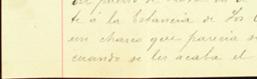 te á la Estancia de los
un charco que parecia s
cuando se les acaba el